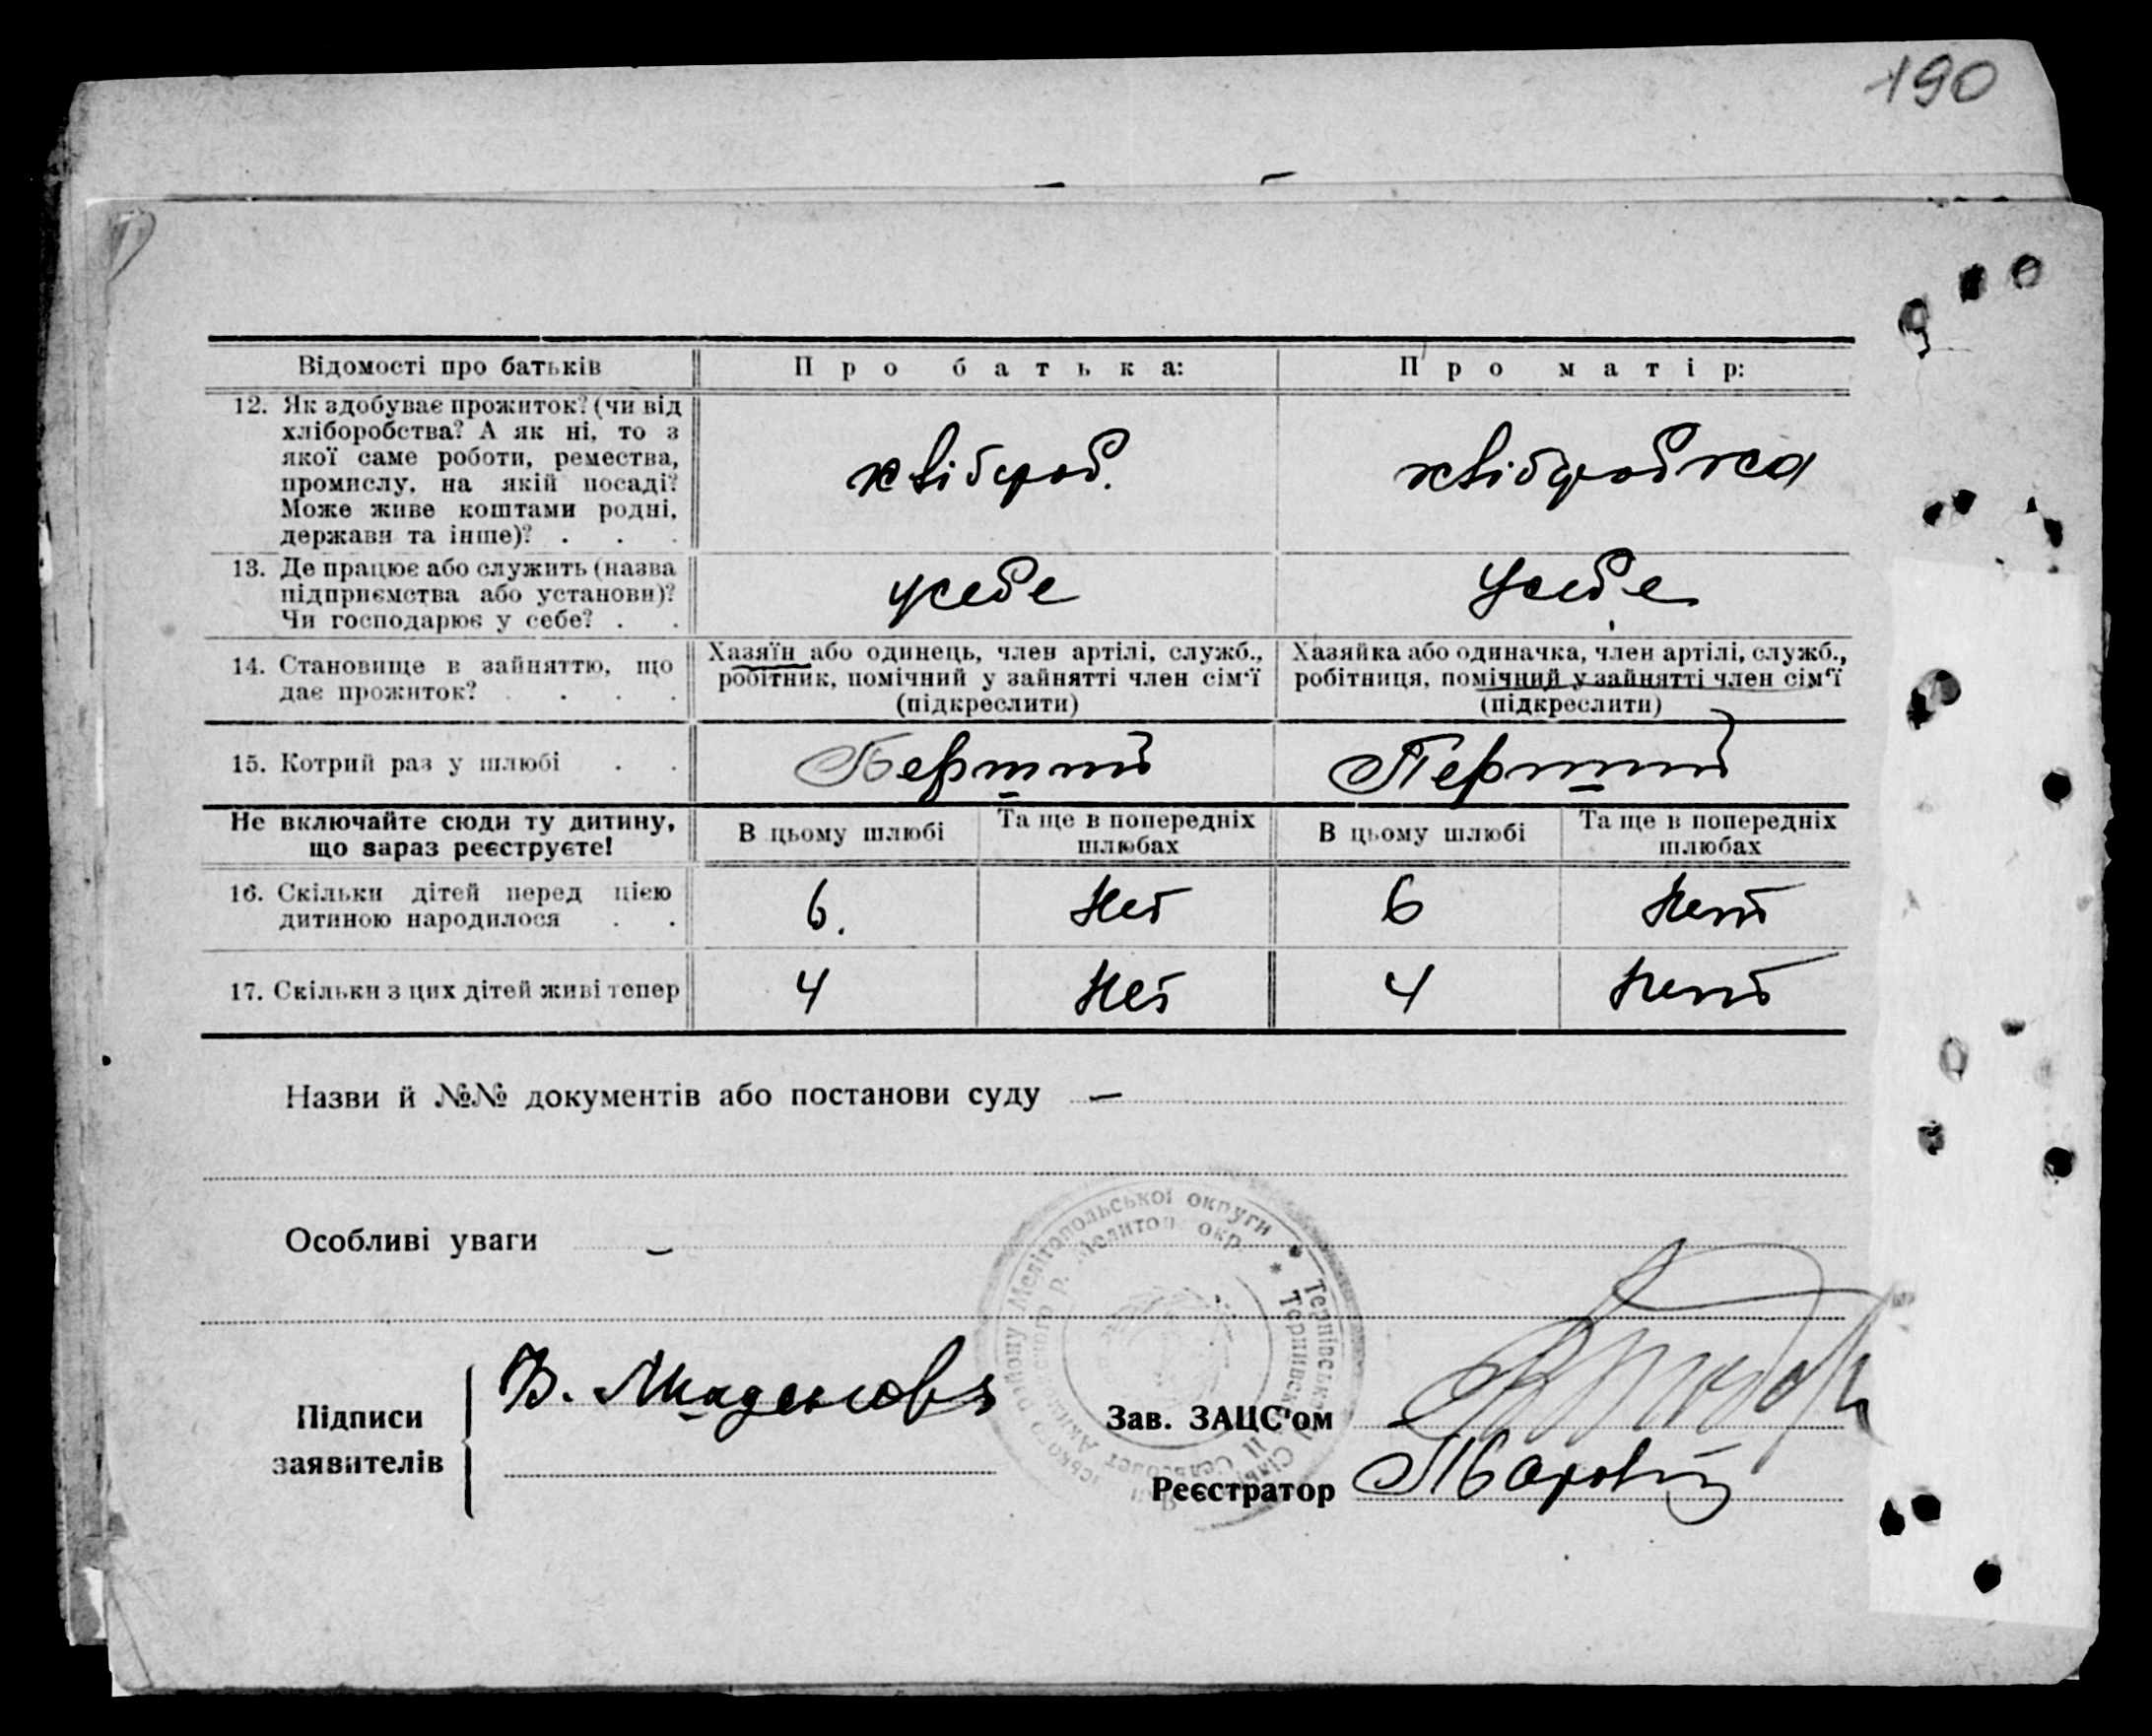 190
Відомості про батьків
Про батька:
Про матір:
12. Як здобуває прожиток? (чи від
хліборобства? А як ні, то з
якої саме роботи, ремества,
промислу, на якій посаді?
Може живе коштами родні,
держави та інше)? . . .
хвібороб.
хвіборобка
13. Де працює або служить (назва
підприємства або установи)?
Чи господарює у себе? . .
усебе
Усебе
14. Становище в зайняттю, що
дає прожиток? . . . .
Хазяїн або одинець, член артілі, служб.,
робітник, помічний у зайнятті член сім'ї
(підкреслити)
Хазяйка або одиначка, член артілі, служб.,
робітниця, помічний у зайнятті член сім'ї
(підкреслити)
15. Котрий раз у шлюбі . .
Первий
Первий
Не включайте сюди ту дитину,
що зараз реєструєте!
В цьому шлюбі
Та ще в попередніх
шлюбах
В цьому шлюбі
Та ще в попередніх
шлюбах
16. Скільки дітей перед цією
дитиною народилося . .
6.
Нет
6
Нет
17. Скільки з цих дітей живі тепер
4
Нет
4
Нет
Назви й №№ документів або постанови суду —
Особливі уваги —
Мелітопольської округи * Тернівськ
Мелитоп окр. * Терновск
Підписи
заявителів
В.
Зав. ЗАЦС'ом
Реєстратор